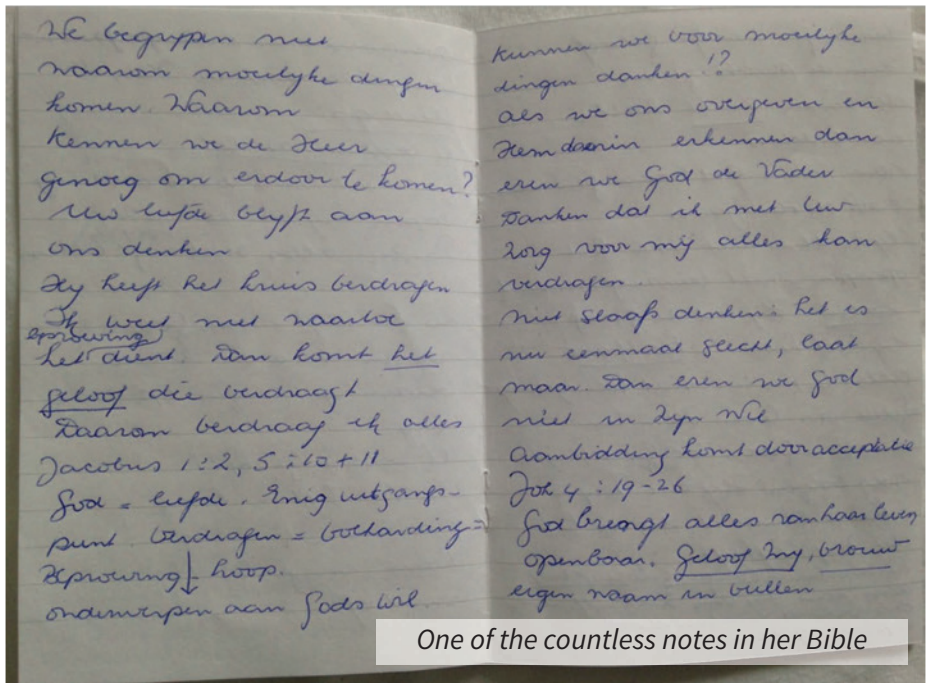 We begrijpen niet
waarom moeilijke dingen
komen. Waarom
Kennen we de Heer
genoeg om erdoor te komen?
Uw liefde blijft aan
ons denken
Hij heeft het kruis verdragen
Ik weet niet waartoe
beproeving
het dient. Dan komt het
geloof die verdraagt
Daarom verdraag ik alles
Jacobus 1:2, 5:10+11
God = liefde. Enig uitgangs-
punt verdragen = volharding =
Beproeving hoop.
onderwerpen aan Gods wil
Kunnen we voor moeilijke
dingen danken!?
als we ons overgeven en
Hem daarin erkennen dan
eren we God de Vader
Danken dat ik met Uw
zorg voor mij alles kan
verdragen.
Niet slaafs denken: het is
nu eenmaal slecht, laat
maar. Dan eren we God
niet in Zijn Wil
Aanbidding komt door acceptatie
Joh 4:19-26
God brengt alles van haar leven
openbaar. Geloof Mij, vrouw
eigen naam in vullen
One of the countless notes in her Bible